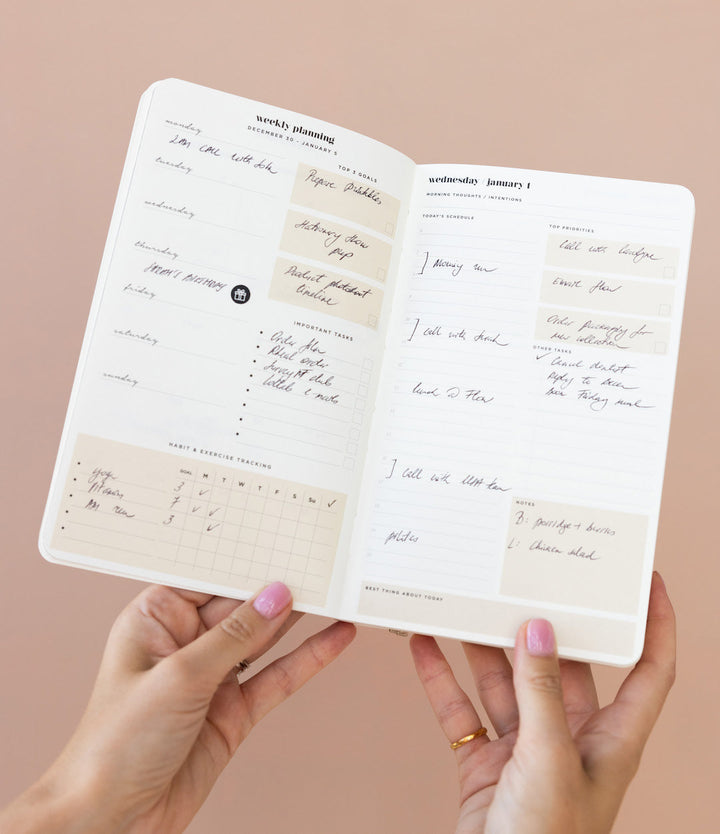 weekly planning
DECEMBER 30 - JANUARY 5
monday
call with John
tuesday
wednesday
thursday
BIRTHDAY
friday
saturday
sunday
TOP 3 GOALS
Prepare printables
Stationery show
prep
Product photoshoot
timeline
IMPORTANT TASKS
Order
order
HABIT & EXERCISE TRACKING
GOAL M T W T F S Su ✓
yoga 3 ✓
7 ✓
AM run 3 ✓
wednesday / january 1
MORNING THOUGHTS / INTENTIONS
TODAY'S SCHEDULE
] Morning run
] call with
lunch @ Flow
] call with team
pilates
TOP PRIORITIES
Call with
Order packaging for
new collection
OTHER TASKS
✓ Cancel dentist
Reply to
Friday
NOTES
B: porridge + berries
L: Chicken salad
BEST THING ABOUT TODAY